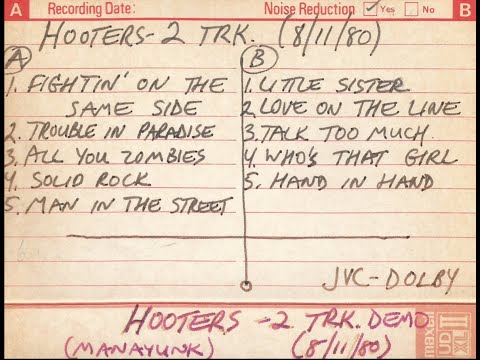 A Recording Date: Noise Reduction ✓ Yes No B
HOOTERS-2 TRK. (8/11/80)
A
1. FIGHTIN' ON THE
SAME SIDE
2. TROUBLE IN PARADISE
3. ALL YOU ZOMBIES
4. SOLID ROCK
5. MAN IN THE STREET
B
1. LITTLE SISTER
2 LOVE ON THE LINE
3. TALK TOO MUCH
4. WHO'S THAT GIRL
5. HAND IN HAND
JVC-DOLBY
HOOTERS -2 TRK. DEMO
(MANAYUNK) (8/11/80)
maxell
UD
XLII